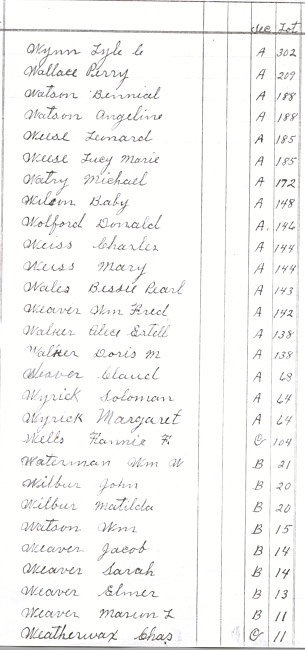 Sec Lot
Wynn Lyle C A 302
Wallace Perry A 209
Watson Bennial A 188
Watson Angeline A 188
Weese Leonard A 185
Weese Lucy Marie A 185
Watry Michael A 172
Wilson Baby A 148
Wolford Donald A. 146
Weiss Charles A 144
Weiss Mary A 144
Wales Bessie Pearl A 143
Weaver Wm Fred A 142
Walker Alice Estell A 138
Walker Doris M A 138
Weaver Claud A 68
Wyrick Soloman A 64
Wyrick Margaret A 64
Wells Fannie F. C 104
Waterman Wm W B 21
Wilbur John B 20
Wilbur Matilda B 20
Watson Wm B 15
Weaver Jacob B 14
Weaver Sarah B 14
Weaver Elmer B 13
Weaver Marion L B 11
Weatherwax Chas C 11